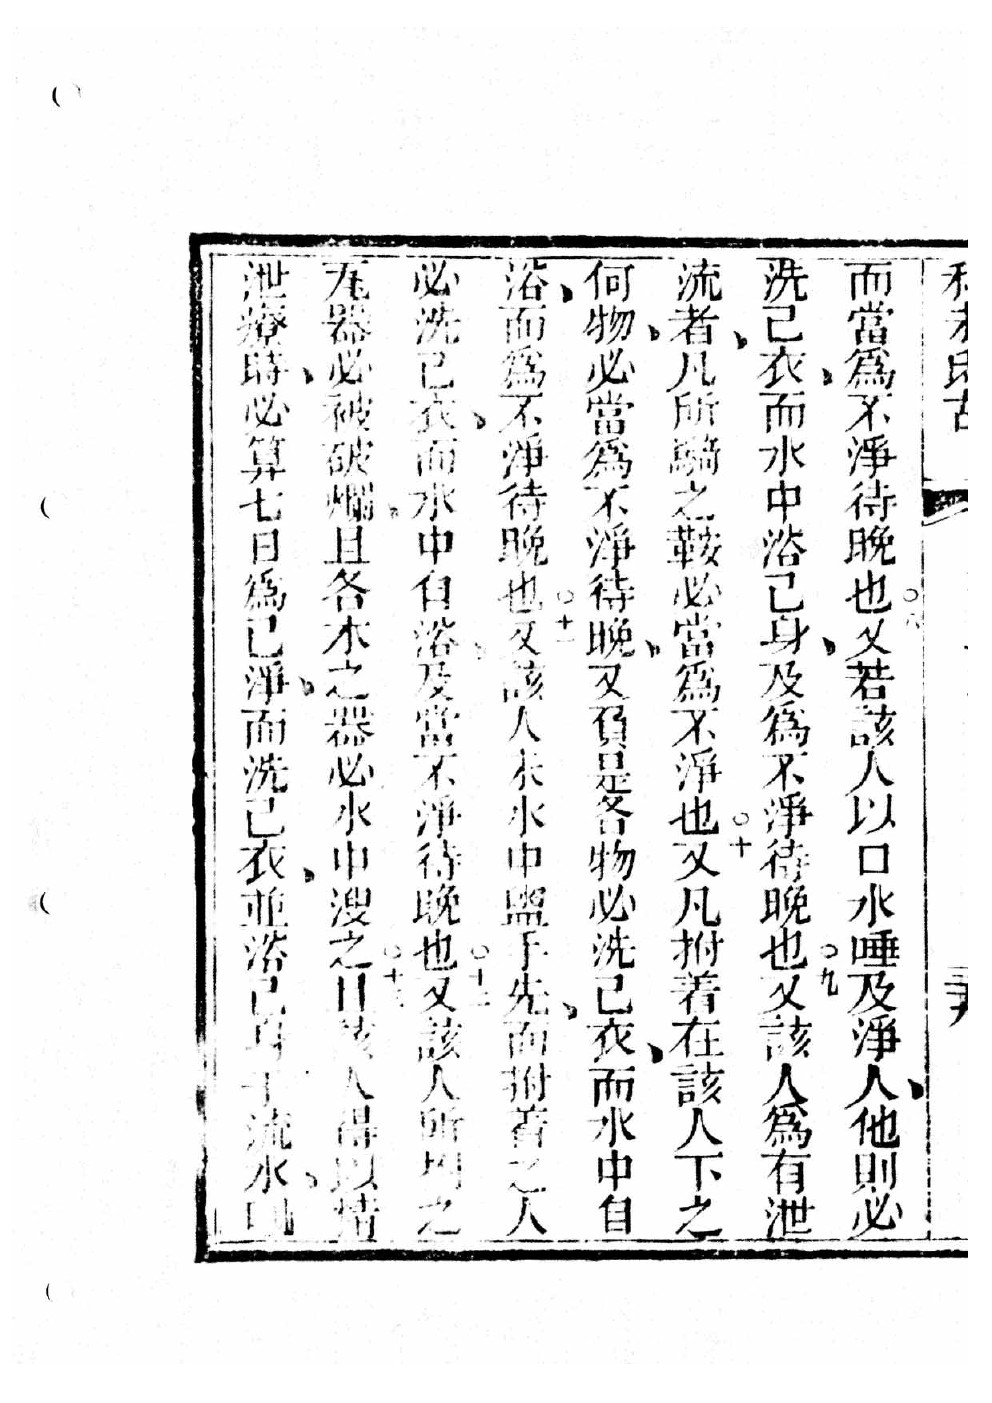 而當爲不淨待晚也○八又若該人以口水唾及淨人他則必
洗己衣而水中浴己身及爲不淨待晚也○九又該人爲有泄
流者凡所騎之鞍必當爲不淨也○十又凡拊着在該人下之
何物必當爲不淨待晚又負是各物必洗己衣而水中自
浴而爲不淨待晚也○十一又該人未水中盥手先而拊着之人
必洗己衣而水中自浴及當不淨待晚也○十二又該人所拊之
瓦器必被破爛且各木之器必水中溲之○十三日該人得以
泄療時必算七日爲己淨而洗己衣並浴己身于流水